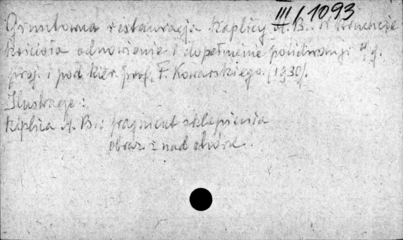 III/1093
Gruntowna restauracja kaplicy M. B. w
kościoła odnowienie i dopełnienie polichromji w.g.
proj. i pod kier. prof. F. Kowarskiego. (1930).
Ilustracje:
Kaplica M. B.: fragment sklepienia
obraz z nad